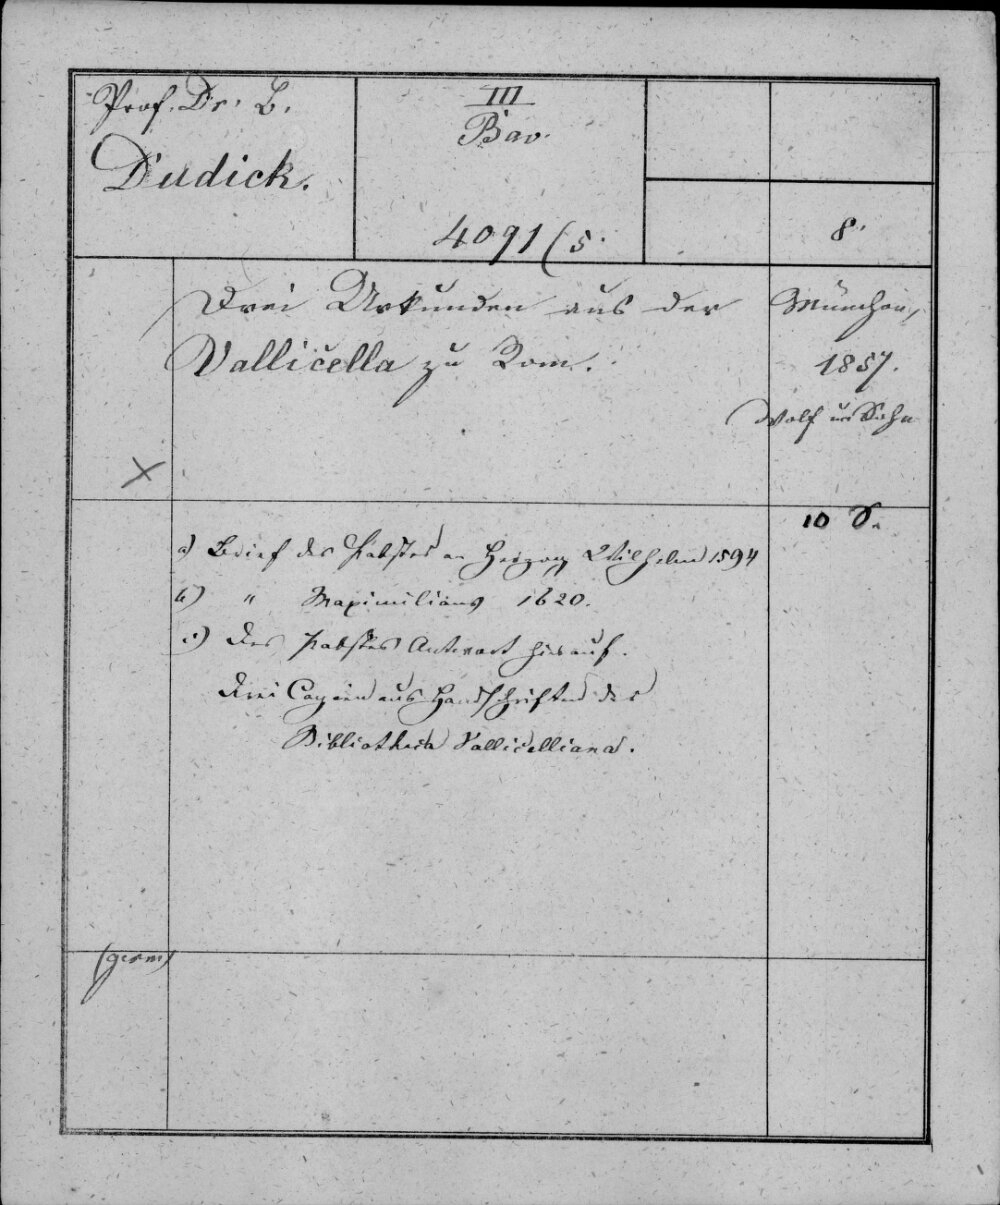 Prof. Dr. B.
Dudick.
III
Bav.
4091(5.
8.
Drei Urkunden aus der
Vallicella zu Rom.
München,
1857.
Wolf u. Sohn
10 S.
a) Brief des Pabstes an Herzog Wilhelm 1594
b) " Maximilians 1620.
c) Des Pabstes Antwort hierauf.
Drei Copien aus Handschriften der
Bibliotheca Vallicelliana.
(germ)